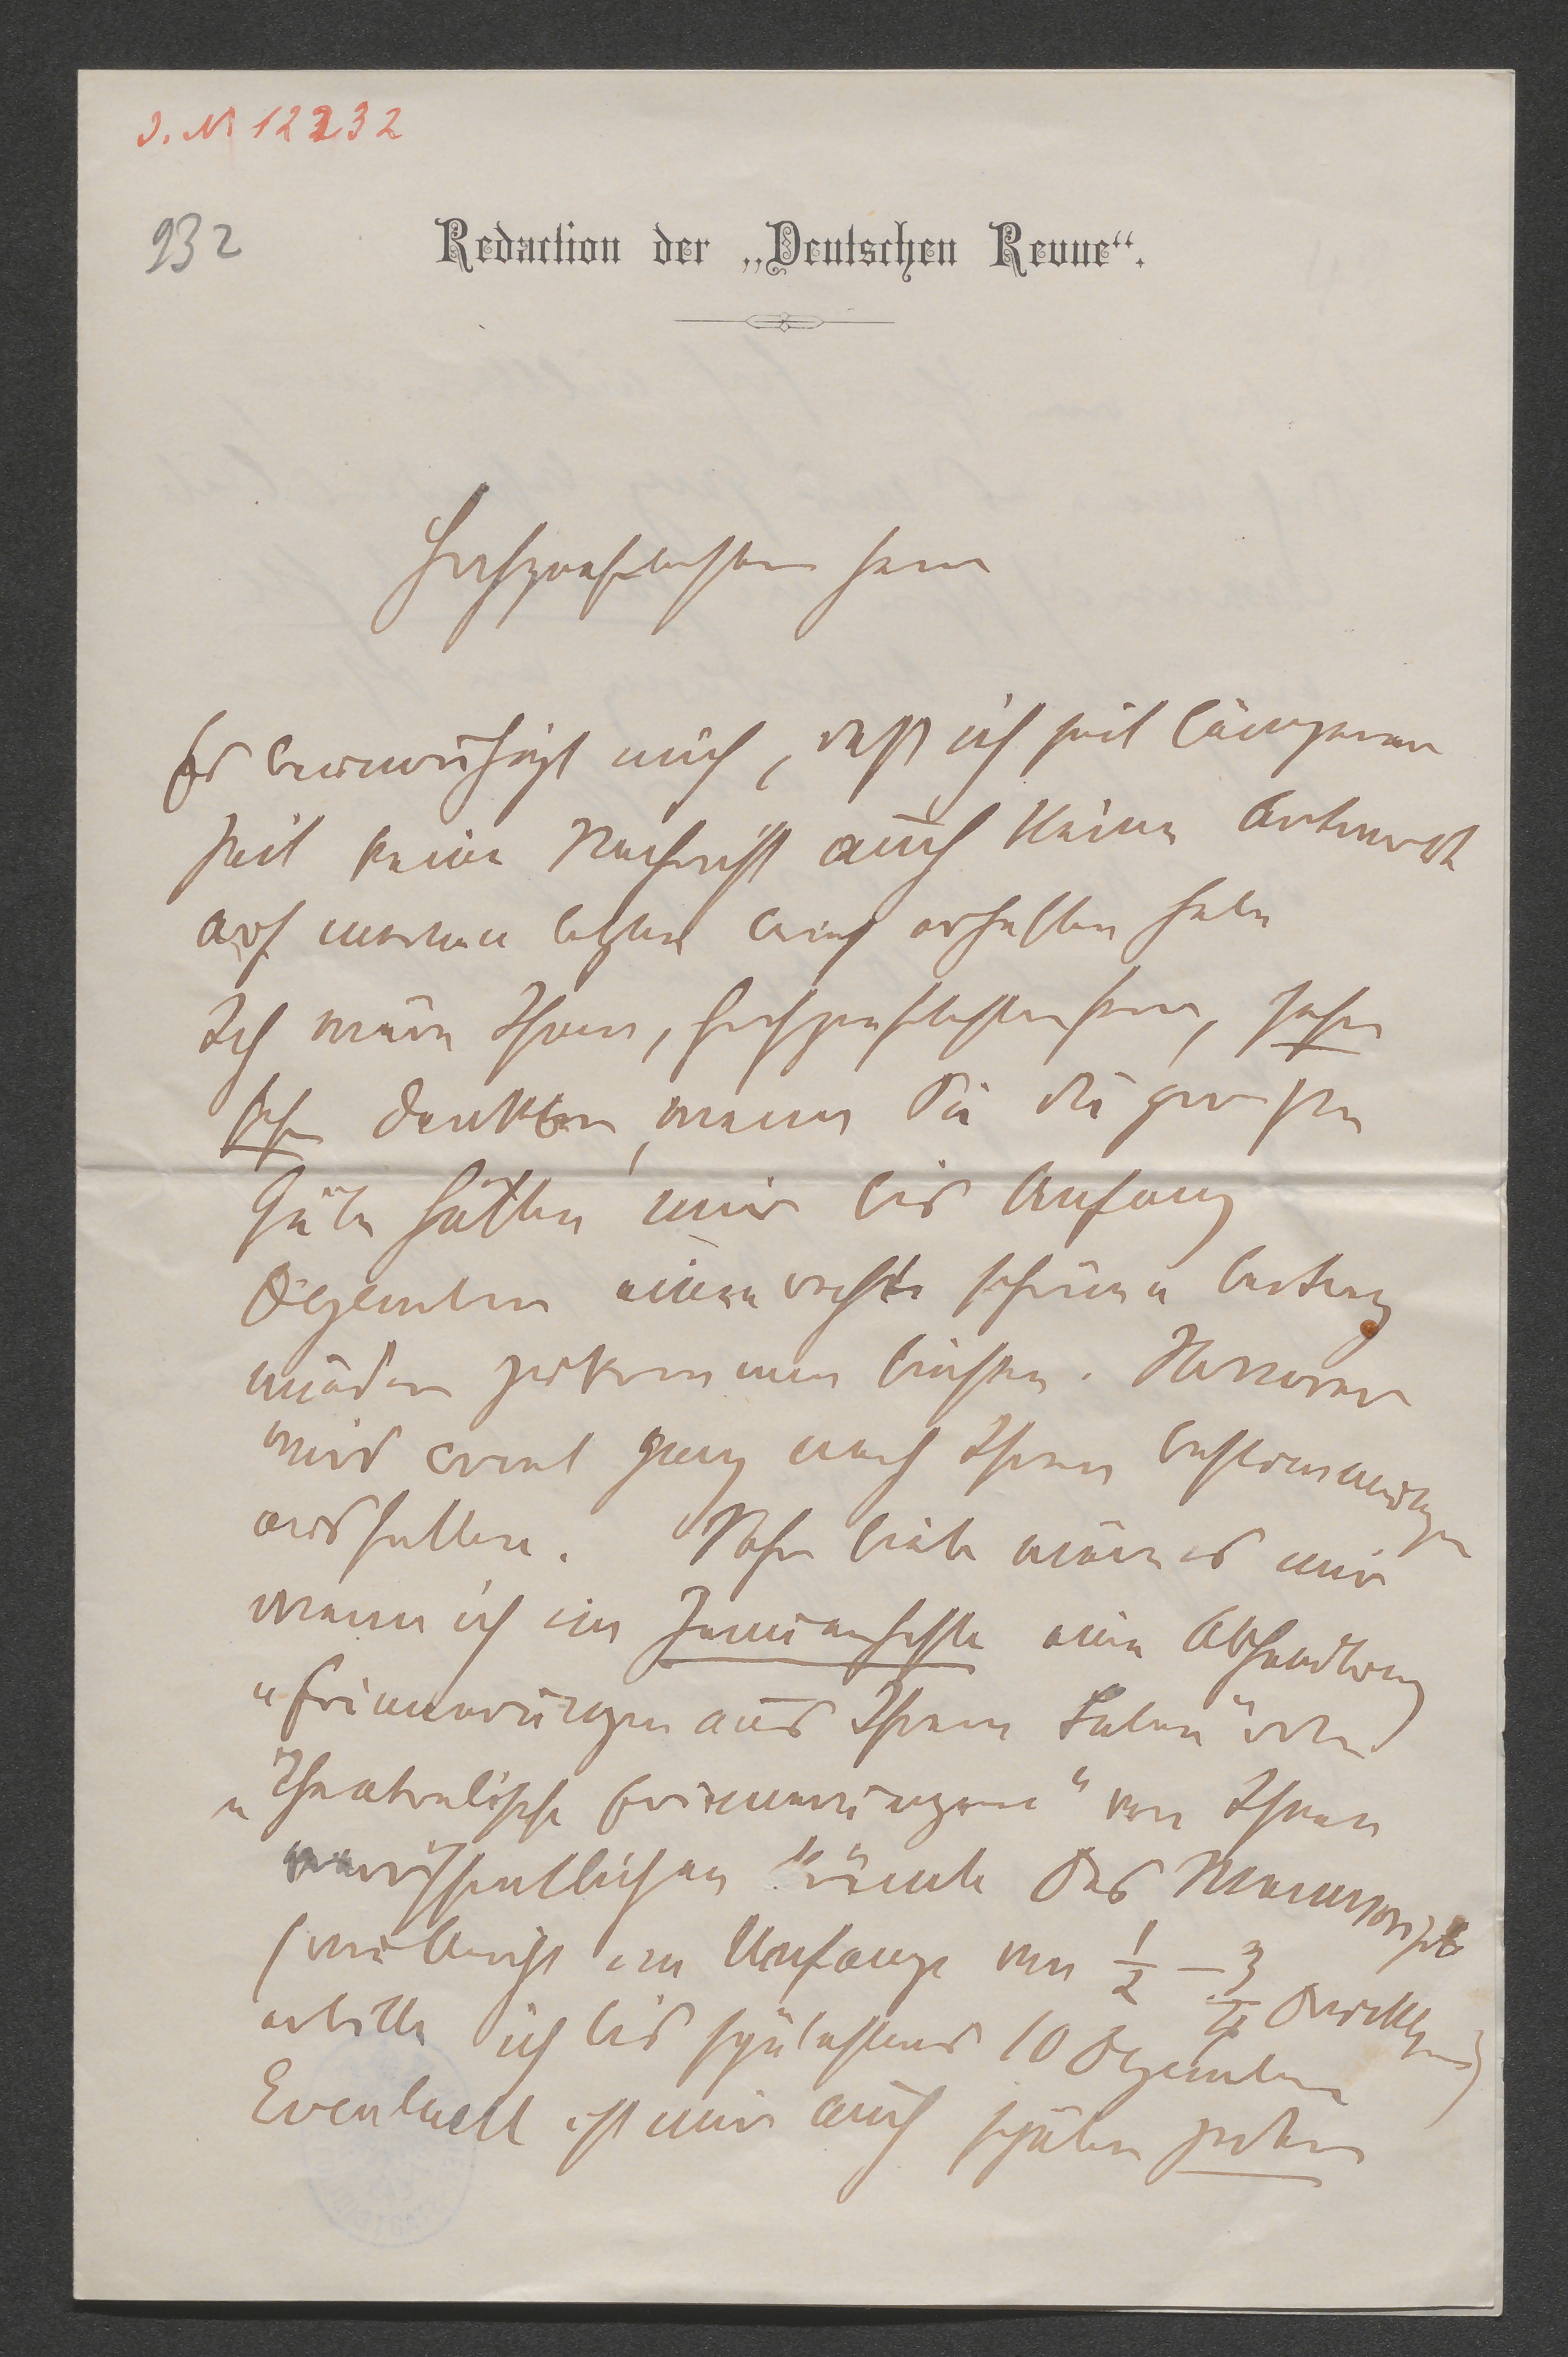 J. N 12232
932
Redaction der „Deutschen Revue“.
Hochgeehrtester Herr
Es beunruhigt mich, daß ich seit längerer
Zeit keine Nachricht auch keine Antwort
auf meinen letzten Brief erhalten habe
Ich wäre Ihnen, hochgeehrtester Herr, sehr
sehr dankbar, wenn Sie die große
Güte hätten mir bis Anfang
Dezember einen recht schönen Beitrag
wieder zukommen ließen. Honorar
wird event ganz nach Ihren Bestimmungen
ausfallen. Sehr lieb wäre es mir
wenn ich im Januarhefte eine Abhandlung
„Erinnerungen aus Ihrem Leben“ oder
„Theatralische Erinnerungen“ von Ihnen
veröffentlichen könnte Das Manuscript
(vielleicht im Umfange von 1/2 – 3/4 Druckbogen)
erbitte ich bis spätestens 10 Dezember
Eventuell ist mir auch später jeder